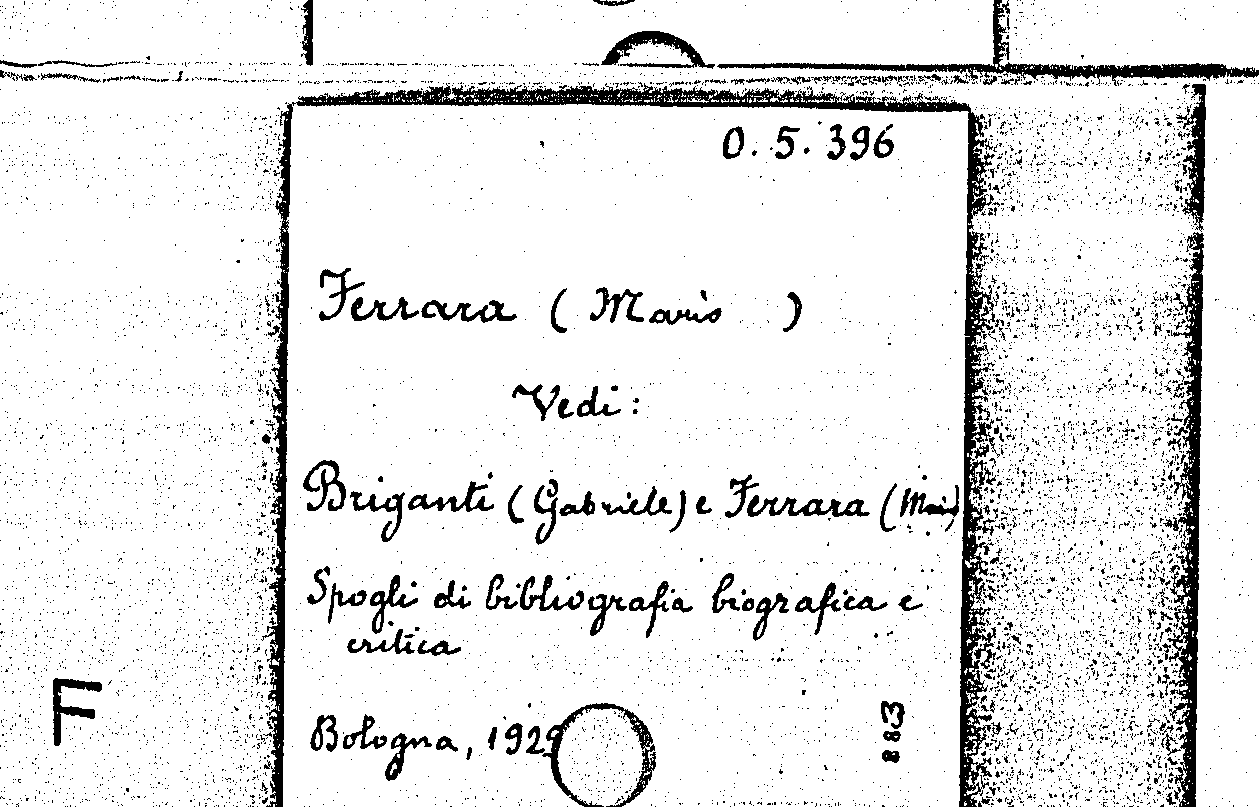 0.5.396
Ferrara (Mario)
Vedi:
Briganti (Gabriele) e Ferrara (Mario)
Spogli di bibliografia biografica e
critica
Bologna, 1929
F